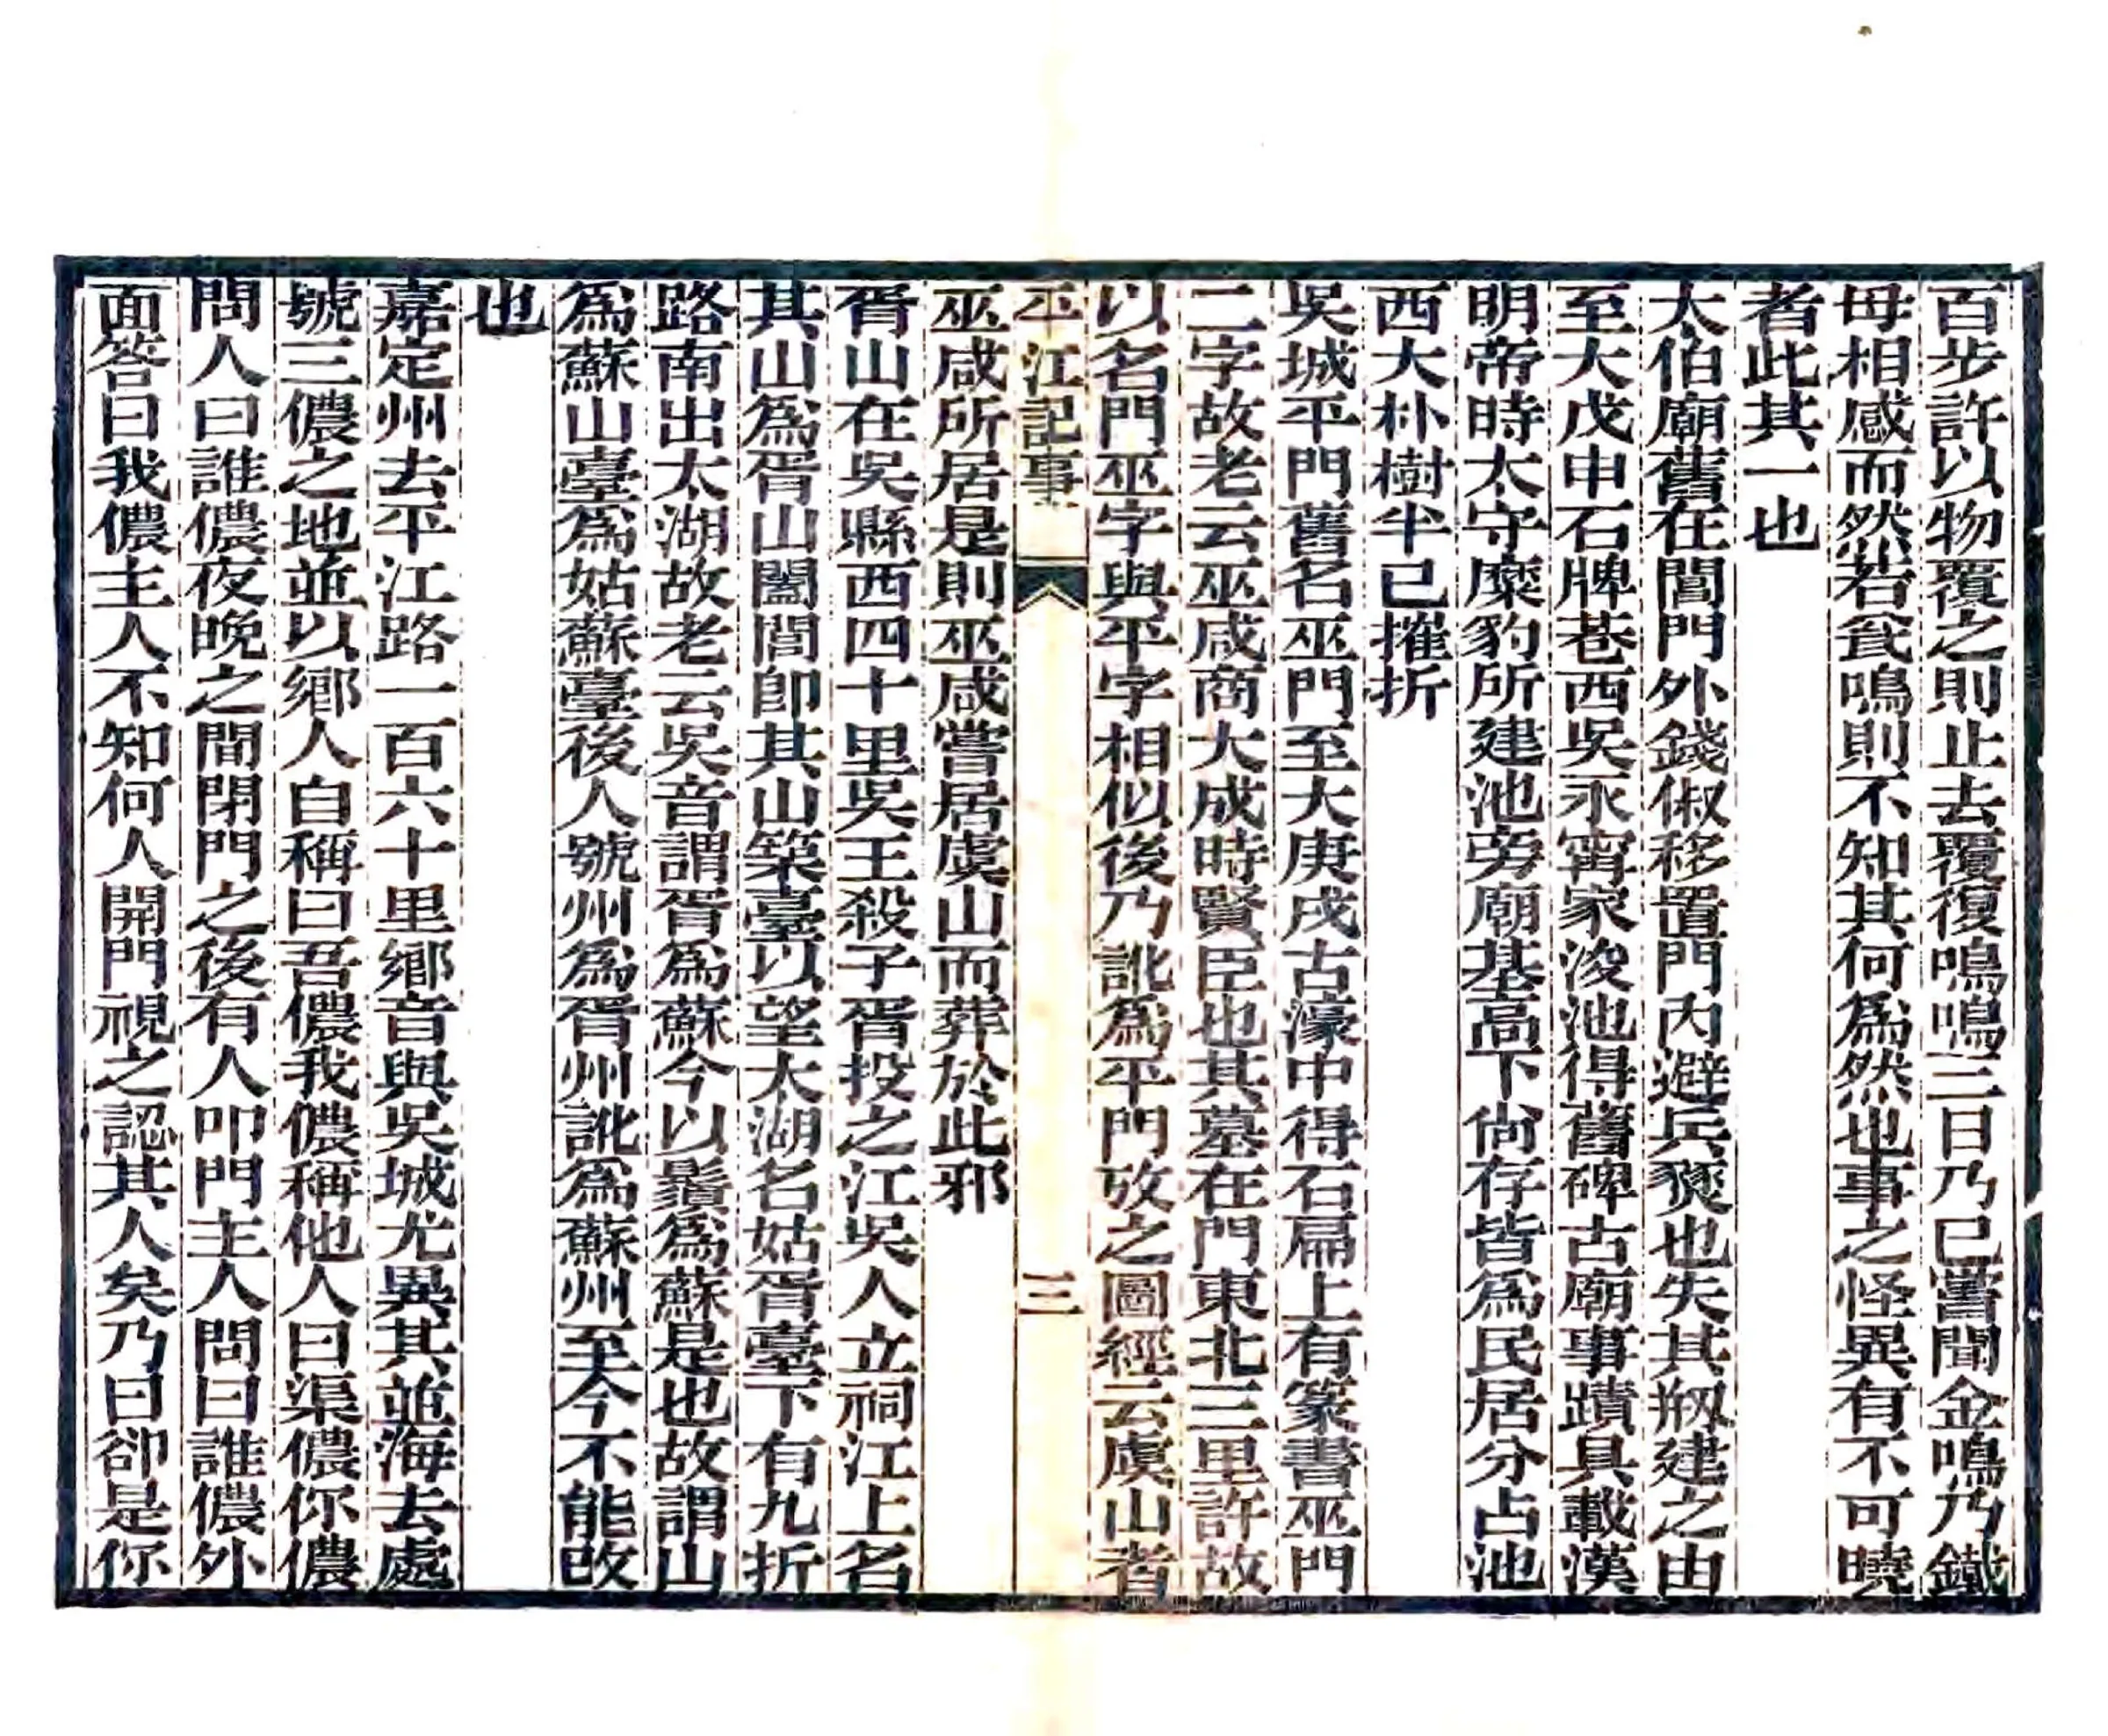 百步許以物覆之則止去覆復鳴鳴三日乃已嘗聞金鳴乃鐵
母相感而然若瓮鳴則不知其何爲然也事之怪異有不可曉
者此其一也
太伯廟舊在閶門外錢俶移置門内避兵燹也失其剏建之由
至大戊申石牌巷西吳永甯家浚池得舊碑古廟事蹟具載漢
明帝時太守糜豹所建池旁廟基高下尙存皆爲民居分占池
西大朴樹半已摧折
吳城平門舊名巫門至大庚戌古濠中得石扁上有篆書巫門
二字故老云巫咸商大戊時賢臣也其墓在門東北三里許故
以名門巫字與平字相似後乃訛爲平門攷之圖經云虞山者
平江記事
三
巫咸所居是則巫咸嘗居虞山而葬於此邪
胥山在吳縣西四十里吳王殺子胥投之江吳人立祠江上名
其山爲胥山闔閭卽其山築臺以望太湖名姑胥臺下有九折
路南出太湖故老云吳音謂胥爲蘇今以鬚爲蘇是也故謂山
爲蘇山臺爲姑蘇臺後人號州爲胥州訛爲蘇州至今不能改
也
嘉定州去平江路一百六十里鄉音與吳城尤異其並海去處
號三儂之地並以鄉人自稱曰吾儂我儂稱他人曰渠儂你儂
問人曰誰儂夜晚之間閉門之後有人叩門主人問曰誰儂外
面答曰我儂主人不知何人開門視之認其人矣乃曰卻是你